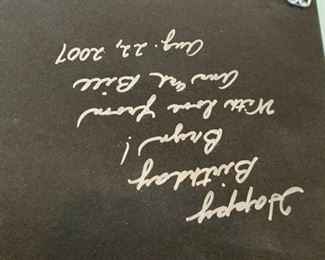 Happy
Birthday
Bryn!
With love from
Ann and Bill
Aug. 22, 2007